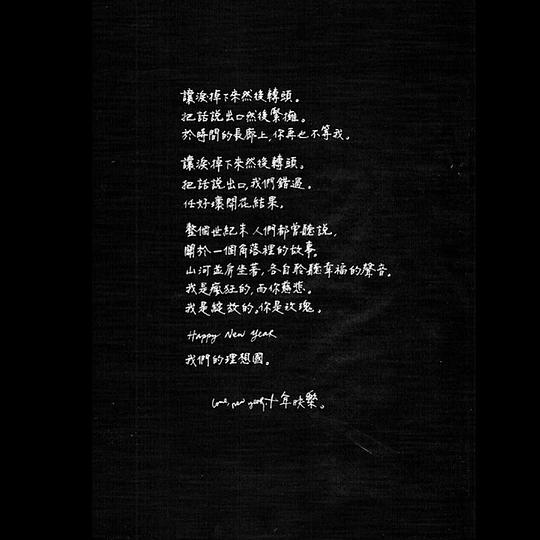 讓淚掉下來然後轉頭。
把話說出口然後緊擁。
於時間的長廊上,你再也不等我。
讓淚掉下來然後轉頭。
把話說出口,我們錯過。
任好壞開花結果。
整個世紀末 人們都曾聽說,
關於一個角落裡的故事。
山河並肩坐著,各自聆聽幸福的聲音。
我是瘋狂的,而你慈悲。
我是綻放的。你是玫瑰。
Happy New Year
我們的理想國。
love, new year,十年快樂。